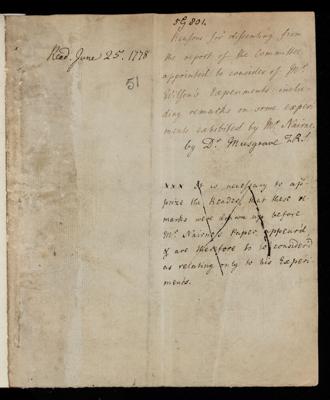 59801.
Read. June 25th. 1778
51
Reasons for dissenting from
the report of the Committee
appointed to consider of Mr.
Wilson's Experiments; inclu-
ding remarks on some experi-
ments exhibited by Mr. Nairne.
by Dr. Musgrave F.R.S.
xxx It is necessary to ap-
prize the Reader, that these re-
marks were drawn up before
Mr. Nairne's Paper appear'd,
& are therefore to be consider'd
as relating only to his Experi-
ments.